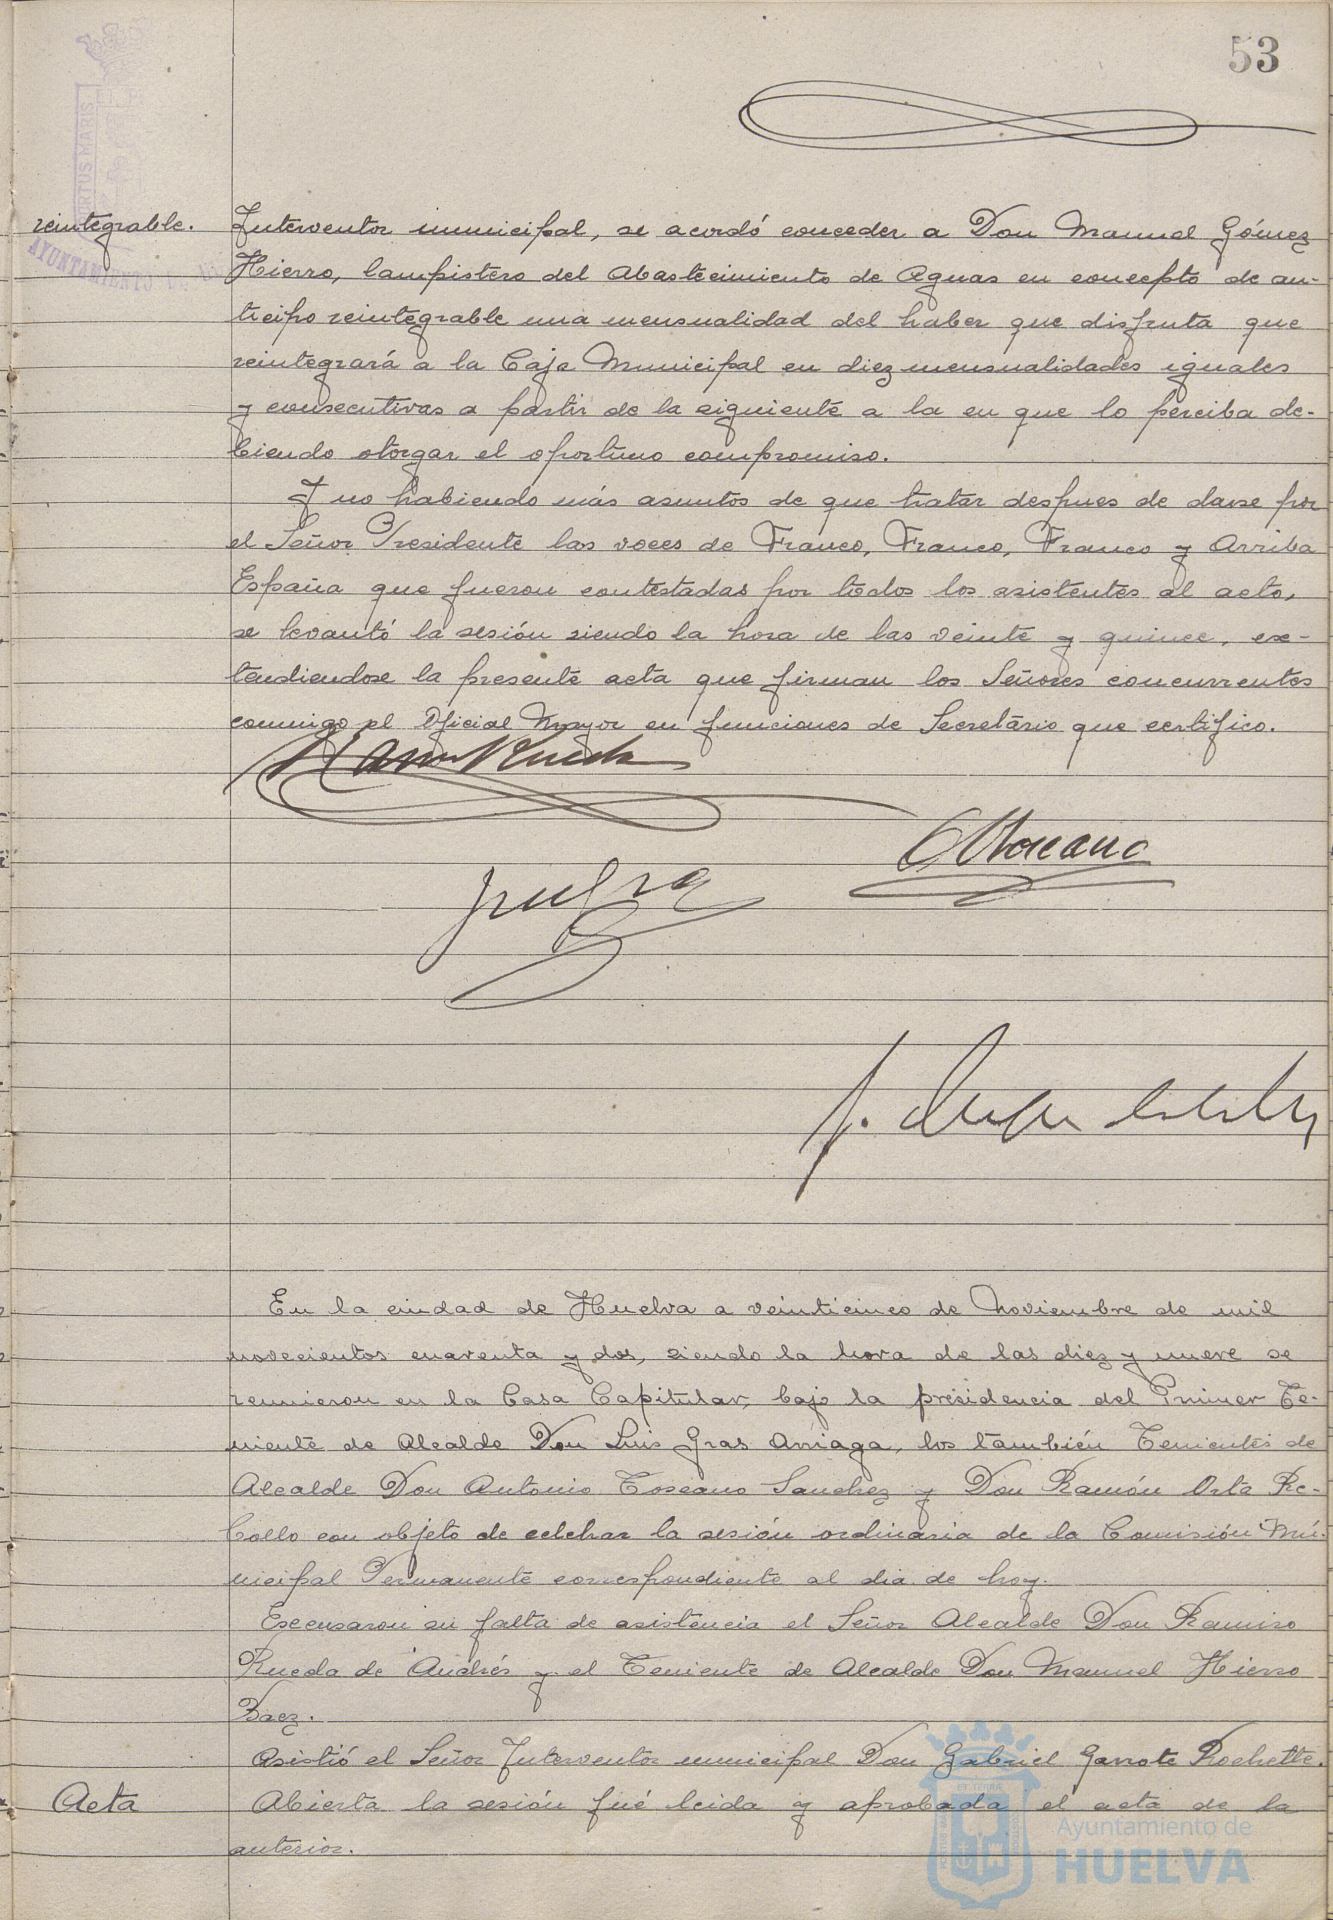 53
PORTUS MARIS
AYUNTAMIENTO DE
reintegrable.
Interventor municipal, se acordó conceder a Don Manuel Gómez
Hierro, lampistero del Abastecimiento de Aguas en concepto de an-
ticipo reintegrable una mensualidad del haber que disfruta que
reintegrará a la Caja Municipal en diez mensualidades iguales
y consecutivas a partir de la siguiente a la en que lo perciba de-
biendo otorgar el oportuno compromiso.
Y no habiendo más asuntos de que tratar despues de darse por
el Señor Presidente las voces de Franco, Franco, Franco y Arriba
España que fueron contestadas por todos los asistentes al acto,
se levantó la sesión siendo la hora de las veinte y quince, ex-
tendiendose la presente acta que firman los Señores concurrentes
conmigo el Oficial Mayor en funciones de Secretario que certifico.
Rueda
A Toscano
En la ciudad de Huelva a veinticinco de Noviembre de mil
novecientos cuarenta y dos, siendo la hora de las diez y nueve se
reunieron en la Casa Capitular, bajo la presidencia del Primer Te-
niente de Alcalde Don Luis Gras Arriaga, los también Tenientes de
Alcalde Don Antonio Toscano Sanchez y Don Ramón Orta Re-
bollo con objeto de celebrar la sesión ordinaria de la Comisión Mu-
nicipal Permanente correspondiente al dia de hoy.
Excusaron su falta de asistencia el Señor Alcalde Don Ramiro
Rueda de Andrés y el Teniente de Alcalde Don Manuel Hierro
Baez.
Asistió el Señor Interventor municipal Don Gabriel Garrote Rochette.
Acta
Abierta la sesión fué leida y aprobada el acta de la
anterior.
Ayuntamiento de
HUELVA